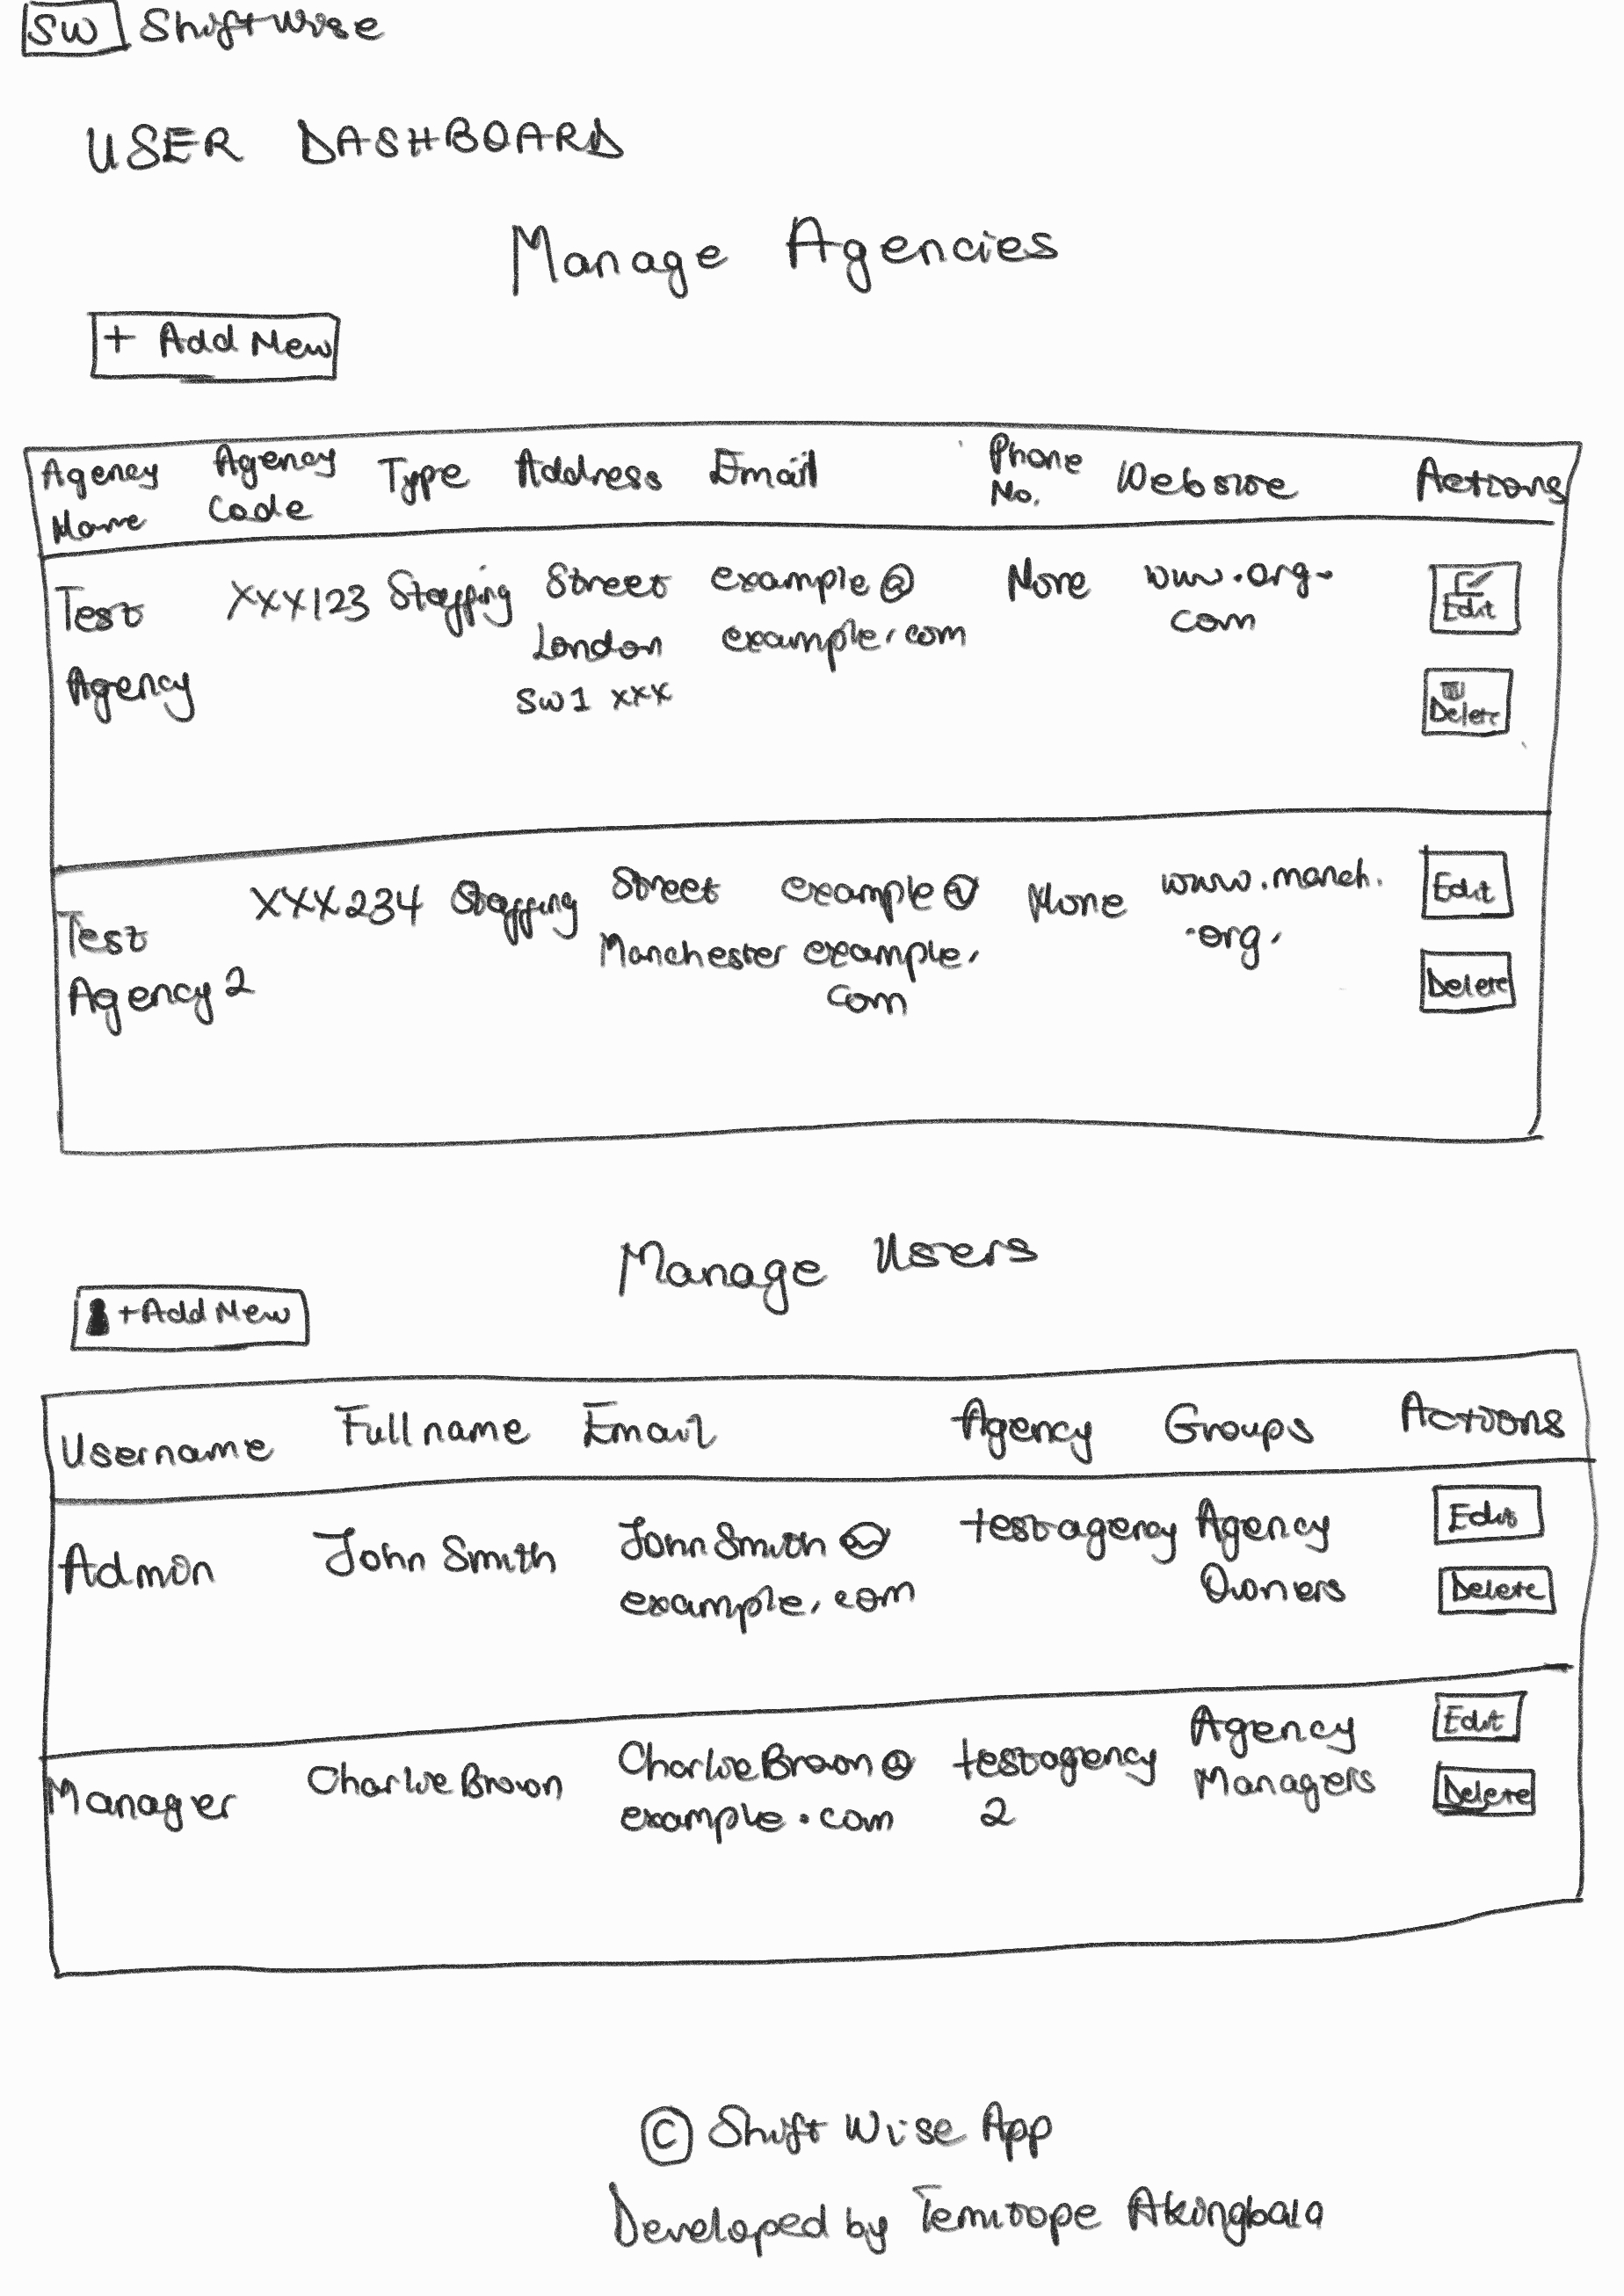 SW ShiftWise
USER DASHBOARD
Manage Agencies
+ Add New
Agency Name Agency Code Type Address Email Phone No. Website Actions
Test Agency XXX123 Staffing Street London SW1 XXX example@example.com None www.org.com Edit Delete
Test Agency 2 XXX234 Staffing Street Manchester example@example.com None www.manch..org. Edit Delete
Manage Users
+Add New
Username Full name Email Agency Groups Actions
Admin John Smith John Smith@example.com testagency Agency Owners Edit Delete
Manager Charlie Brown Charlie Brown@example.com testagency 2 Agency Managers Edit Delete
© Shift Wise App
Developed by Temitope Akingbala